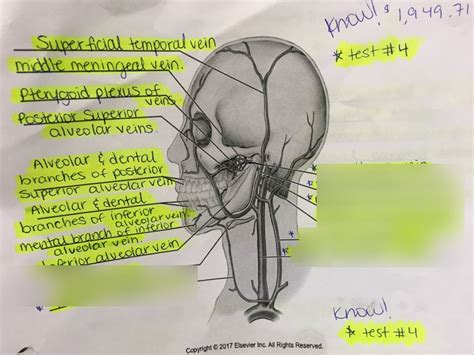 Know! $1,949.71
* test #4
Superficial temporal vein
middle meningeal vein.
Pterygoid plexus of
veins
Posterior Superior
alveolar veins.
Alveolar & dental
branches of posterior
Superior alveolar vein
Alveolar & dental
branches of inferior
alveolar vein
mental branch of inferior
alveolar vein.
Inferior alveolar vein.
Know!
* test #4
Copyright © 2017 Elsevier Inc. All Rights Reserved.